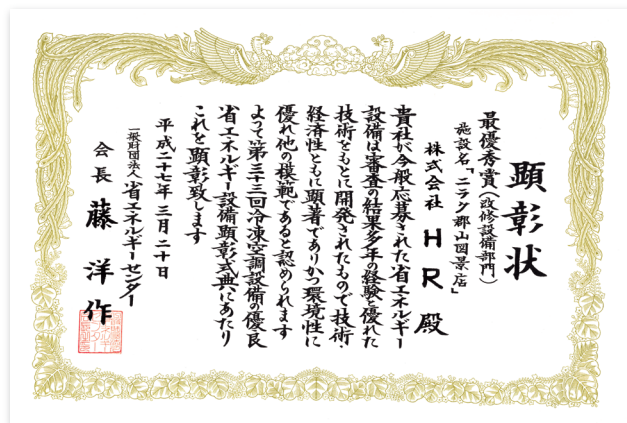 顕彰状
最優秀賞(改修設備部門)
施設名「ニラク郡山図景店」
株式会社 HR 殿
貴社が今般応募された省エネルギー
設備は審査の結果多年の経験と優れた
技術をもとに開発されたもので技術・
経済性ともに顕著でありかつ環境性に
優れ他の模範であると認められます
よって第三十三回冷凍空調設備の優良
省エネルギー設備顕彰式典にあたり
これを顕彰致します
平成二十七年三月二十日
一般財団法人 省エネルギーセンター
会長 藤洋作